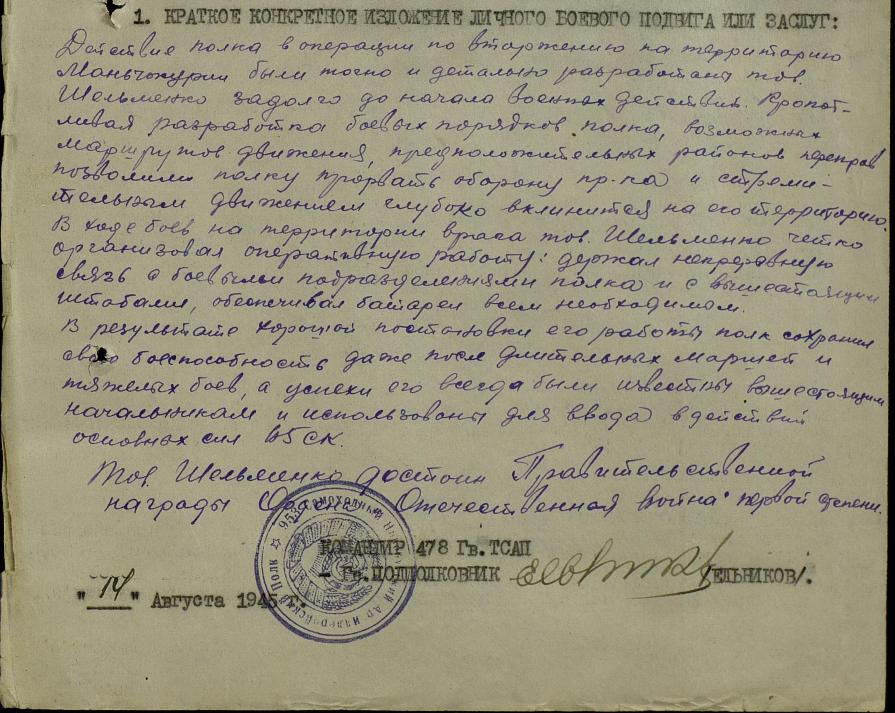 1. КРАТКОЕ КОНКРЕТНОЕ ИЗЛОЖЕНИЕ ЛИЧНОГО БОЕВОГО ПОДВИГА ИЛИ ЗАСЛУГ:
Действие полка в операции по вторжению на территорию
Маньчжурии были точно и детально разработаны тов.
Шельменко задолго до начала военных действий. Кропот-
ливая разработка боевых порядков полка, возможных
маршрутов движения, предположительных районов переправ
позволили полку прорвать оборону пр-ка и стреми-
тельным движением глубоко вклинится на его территорию.
В ходе боев на территории врага тов. Шельменко четко
организовал оперативную работу: держал непрерывную
связь с боевыми подразделениями полка и с вышестоящими
штабами, обеспечивал батареи всем необходимым.
В результате хорошой постановки его работы полк сохранил
свою боеспособность даже после длительных маршей и
тяжелых боев, а успехи его всегда были известны вышестоящим
начальникам и использованы для ввода в действий
основных сил СК.
Тов. Шельменко достоин Правительственной
награды Ордена Отечественная война" первой степени.
КОМАНДИР 478 Гв.ТСАП
- Гв.ПОДПОЛКОВНИК ЕЛЬНИКОВ/.
"14" Августа 1945 г.